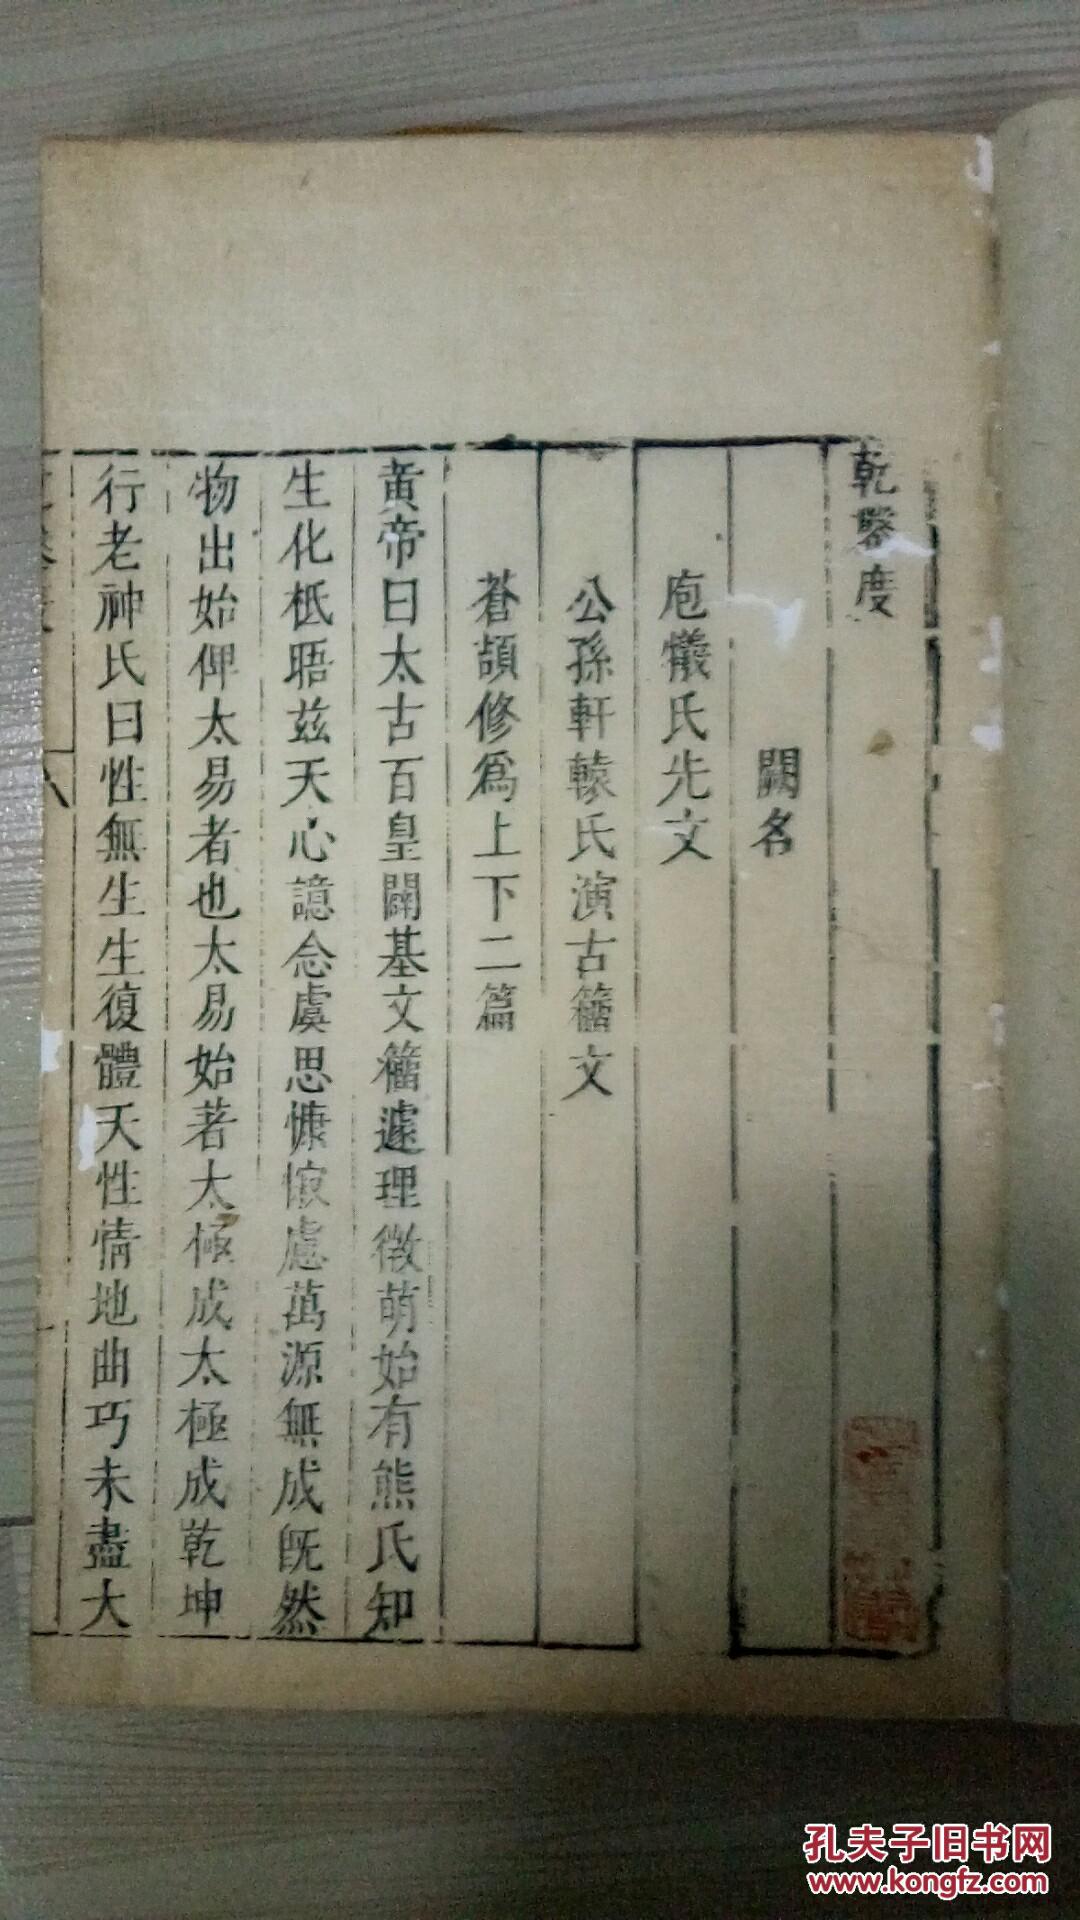 乾鑿度
闕名
庖犧氏先文
公孫軒轅氏演古籒文
蒼頡修爲上下二篇
黃帝曰太古百皇闢基文籒遽理微萌始有熊氏知
生化柢晤茲天心譩念虞思慷㥜慮萬源無成旣然
物出始俾太易者也太易始著太極成太極成乾坤
行老神氏曰性無生生復體天性情地曲巧未盡大
孔夫子旧书网
www.kongfz.com